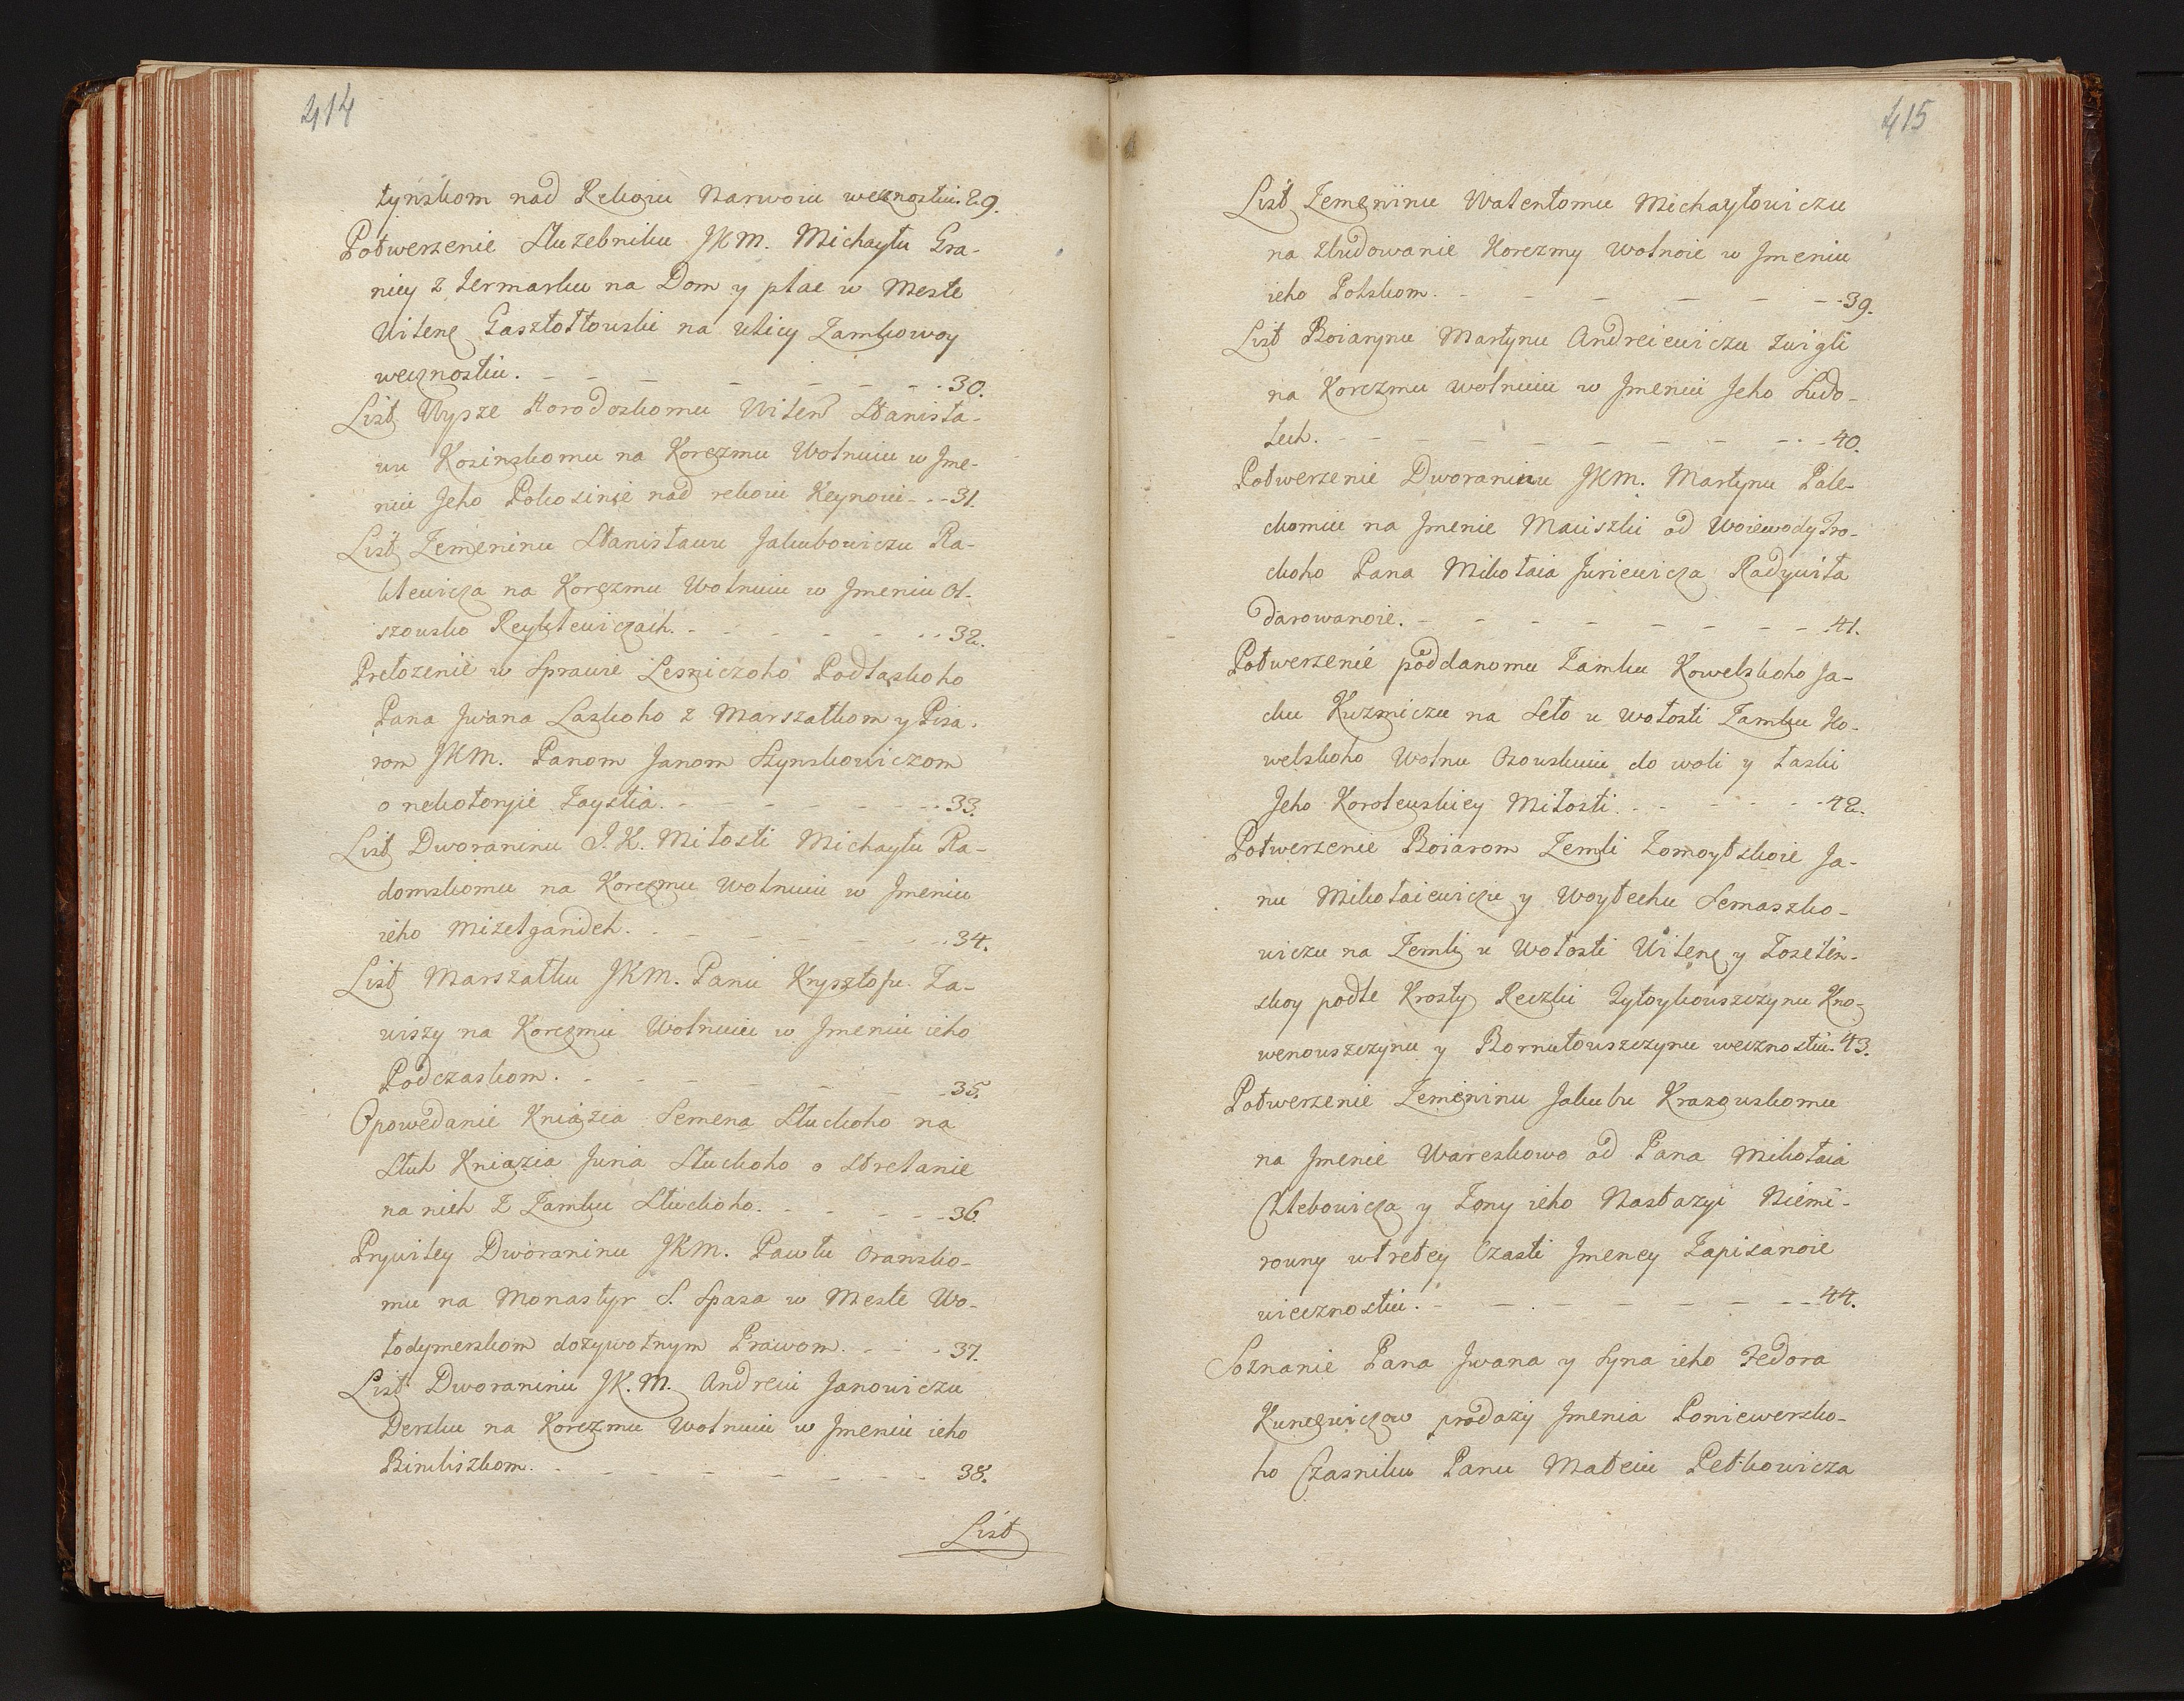 414
tynskom nad Rekoiu Narwoiu wecznostiu. 29.
Potwerzenie Służebniku JKM. Michayłu Gra-
nicy z Jermarku na Dom y płac w Meste
Wilene Gasztołtowski na ulicy Zamkowoy
wecznostiu. 30.
List Wysze Horodoskomu Wilen Stanisła-
wu Kosinskomu na Korczmu Wolnuiu w Jme-
niu Jeho Pokosinie nad rekoiu Keynoiu 31.
List Zemeninu Stanisławu Jakubowiczu Ra-
klewicza na Korczmu Wolnuiu w Jmeniu Ol-
szowsko Reyklewiczach. 32.
Prełozenie w Sprawie Lesniczoho Podlaskoho
Pana Jwana Laskoho z Marszałkom y Pisa-
rom JKM. Panom Janom Szynskowiczom
o nekotoryie Zaystia. 33.
List Dworaninu J. K. Miłosti Michayłu Ra-
domskomu na Korczmu Wolnuiu w Jmeniu
ieho Mizelgandeh. 34.
List Marszałku JKM. Panu Krysztofu Za-
wiszy na Korczmu Wolnuiu w Jmeniu ieho
Podczaskom. 35.
Opowedanie Kniazia Semena Słuckoho na
Sług Kniazia Juria Słuckoho o Strelanie
na nich z Zamku Słuckoho. 36.
Prywiley Dworaninu JKM. Pawłu Oransko-
mu na Monastyr S. Spasa w Meste Wo-
łodymerskom dożywotnym Prawom. 37.
List Dworaninu JK. M. Andreiu Janowiczu
Dersku na Korczmu Wolnuiu w Jmeniu ieho
Binkiszkom. 38.
List
415
List Zemeninu Walentomu Michayłowiczu
na zbudowanie Korczmy Wolnoie w Jmeniu
ieho Polskom. 39.
List Boiarynu Martynu Andreiewiczu Zwigli
na Korczmu wolnuiu w Jmeniu Jeho Ludo-
lech. 40.
Potwerzenie Dworaninu JKM. Martynu Pale-
ckomiu na Jmenie Maiiszki od Woiewody Tro-
ckoho Pana Mikołaia Juriewicza Radywiła
darowanoie. 41.
Potwerzenie poddanomu Zamku Kowelskoho Ja-
cku Kuzmiczu na Seło u wołosti Zamku Ko-
welskoho Wolnu Ozowskuiu do woli y łaski
Jeho Korolewskiey Miłosti. 42.
Potwerzenie Boiarom Zemli Zomoytskoie Ja-
nu Mikołaiewiczu y Woytechu Semaszko-
wiczu na Zemli u Wołosti Wilene y Łoselen-
skoy podle Krosty Reczki Zytoykowszczynu Kno-
wenowszczynu y Bornutowszczynu wecznostiu. 43.
Potwerzenie Zemeninu Jakubu Krasowskomu
na Jmenie Wareskowo od Pana Mikołaia
Chlebowicza y Zony ieho Nastazyi Niemi-
rowny w tretey Czasti Jmeney Zapisanoie
wiecznostiu. 44.
Soznanie Pana Jwana y Syna ieho Fedora
Kuncewiczow prodaży Jmenia Poniewersko-
ho Czasniku Panu Mateiu Petkowicza